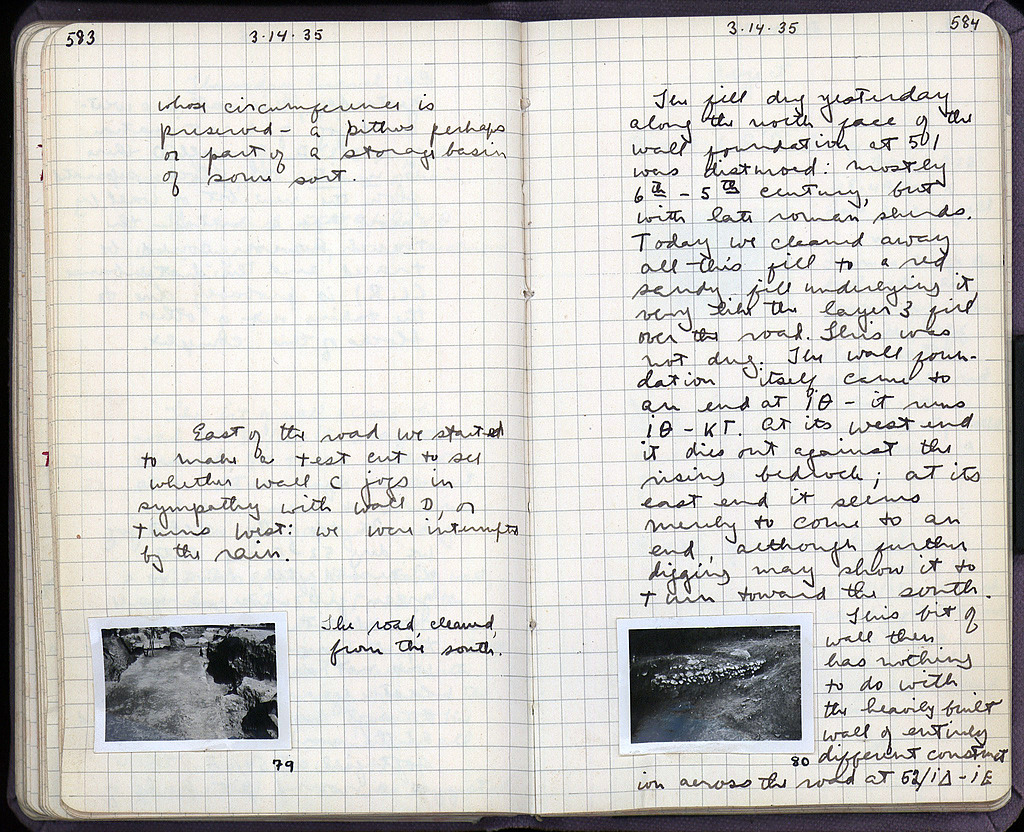 583
3·14·35
whose circumference is
preserved – a pithos perhaps
or part of a storage basin
of some sort.
East of the road we started
to make a test cut to see
whether wall C jogs in
sympathy with wall D, or
turns west: we were interrupted
by the rain.
The road, cleaned,
from the south.
79
3·14·35
584
The fill dug yesterday
along the north face of the
wall foundation at 501
was disturbed: mostly
6th – 5th century, but
with late roman sherds.
Today we cleaned away
all this fill to a red
sandy fill underlying it,
very like the layer 3 fill
over the road. This was
not dug. The wall foun-
dation itself came to
an end at ιθ – it runs
ιθ – ΚΓ. At its west end
it dies out against the
rising bedrock; at its
east end it seems
merely to come to an
end, although further
digging may show it to
turn toward the south.
This bit of
wall then
has nothing
to do with
the heavily built
wall of entirely
different construct
80
ion across the road at 52/ιΔ – ιΕ